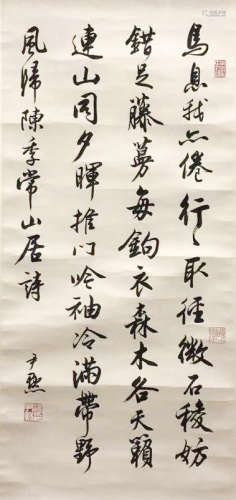 馬息我亦倦行行取徑微石稜妨
錯足藤蔓每鉤衣森木含天籟
連山同夕暉推門吟袖冷滿帶野
風歸陳季常山居詩
尹默